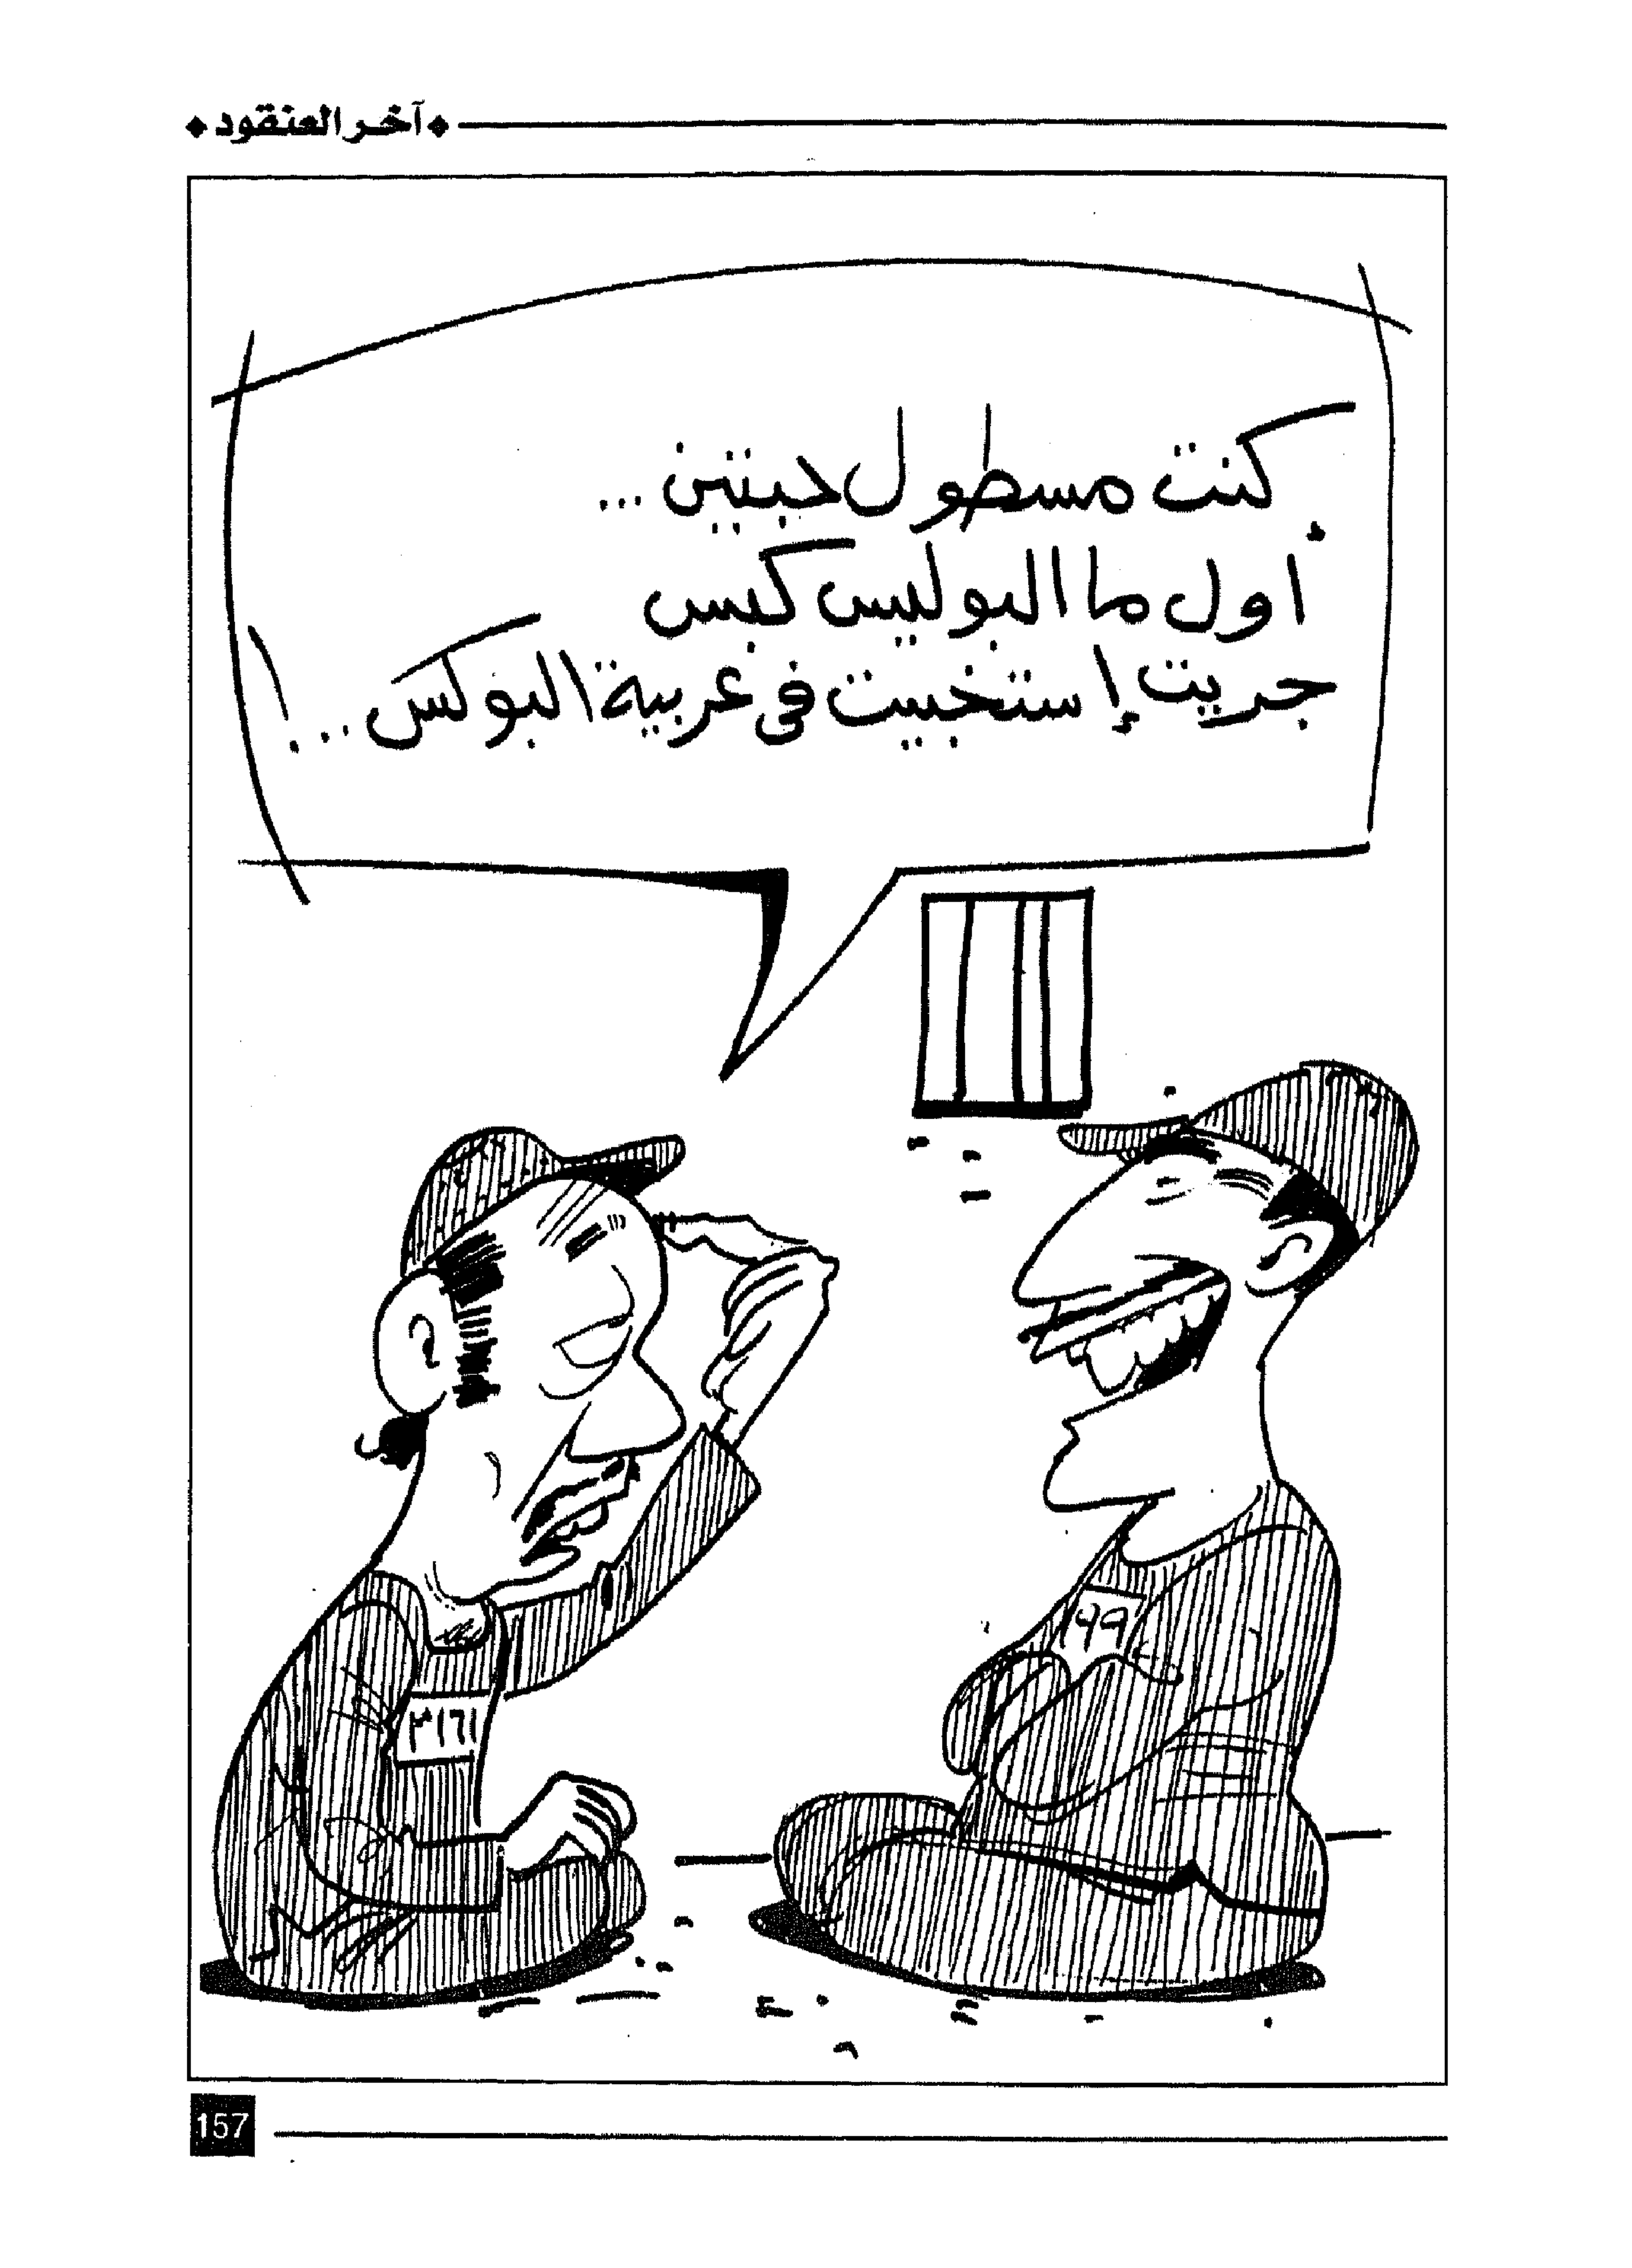 آخر العنقود
كنت مسطول حبتين...
أول ما البوليس كبس
جريت إستخبيت في عربية البوكس...!
٩٩
٣١٦١
157